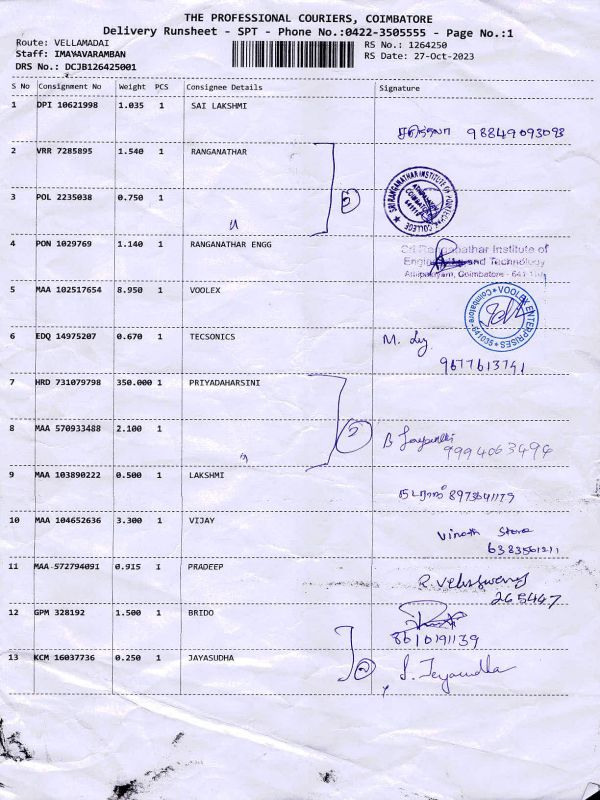 THE PROFESSIONAL COURIERS, COIMBATORE
Delivery Runsheet - SPT - Phone No.:0422-3505555 - Page No.:1
Route: VELLAMADAI
RS No.: 1264250
Staff: IMAYAVARAMBAN
RS Date: 27-Oct-2023
DRS No.: DCJB126425001
S No Consignment No Weight PCS Consignee Details Signature
1 DPI 10621998 1.035 1 SAI LAKSHMI
98849093093
2 VRR 7285895 1.540 1 RANGANATHAR
3 POL 2235038 0.750 1
SRI RANGANATHAR INSTITUTE OF POLYTECHNIC COLLEGE
4 PON 1029769 1.140 1 RANGANATHAR ENGG
Sri Ranganathar Institute of
Engineering and Technology
Athipalayam, Coimbatore - 641 110
5 MAA 102517654 8.950 1 VOOLEX
VOOLEX ENTERPRISES Coimbatore-641035
6 EDQ 14975207 0.670 1 TECSONICS
9677613741
7 HRD 731079798 350.000 1 PRIYADAHARSINI
8 MAA 570933488 2.100 1
9994063494
9 MAA 103890222 0.500 1 LAKSHMI
8973641179
10 MAA 104652636 3.300 1 VIJAY
Vinoth Store
6383561211
11 MAA 572794091 0.915 1 PRADEEP
265447
12 GPM 328192 1.500 1 BRIDO
8610191139
13 KCM 16037736 0.250 1 JAYASUDHA
2
S. Jeyasudha